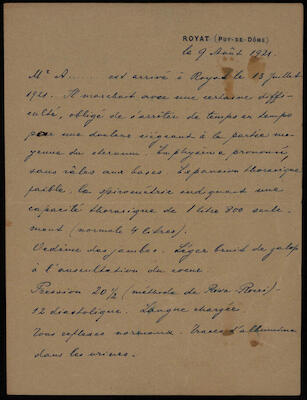 ROYAT (PUY-DE-DÔME)
le 9 Août 1921.
Mr A...... est arrivé à Royat le 13 Juillet
1921. Il marchait avec une certaine diffi-
culté, obligé de s'arrêter de temps en temps
par une douleur siégeant à la partie mo-
yenne du sternum. Emphysème prononcé,
sans râles aux bases. Expansion thoracique
faible. La spirométrie indiquant une
capacité thoracique de 1 litre 800 seule-
ment (normale 4 litres).
Oedème des jambes. Léger bruit de galop
à l'auscultation du coeur.
Pression 20 1/2 (méthode de Riva-Rocci)-
12 diastolique. Langue chargée.
Tous reflexes normaux. Traces d'albumine
dans les urines.